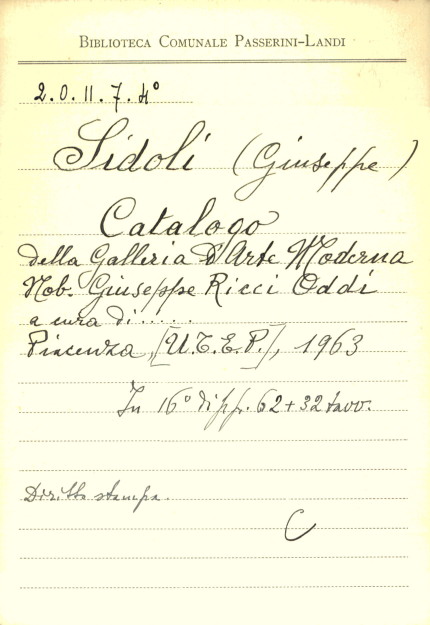 BIBLIOTECA COMUNALE PASSERINI-LANDI
2.0.11.7.4°
Sidoli (Giuseppe)
Catalogo
della Galleria D'Arte Moderna
Nob. Giuseppe Ricci Oddi
a cura di.....
Piacenza, [U.T.E.P.], 1963
In 16° di pp. 62+32 tavv.
Diritto stampa.
C